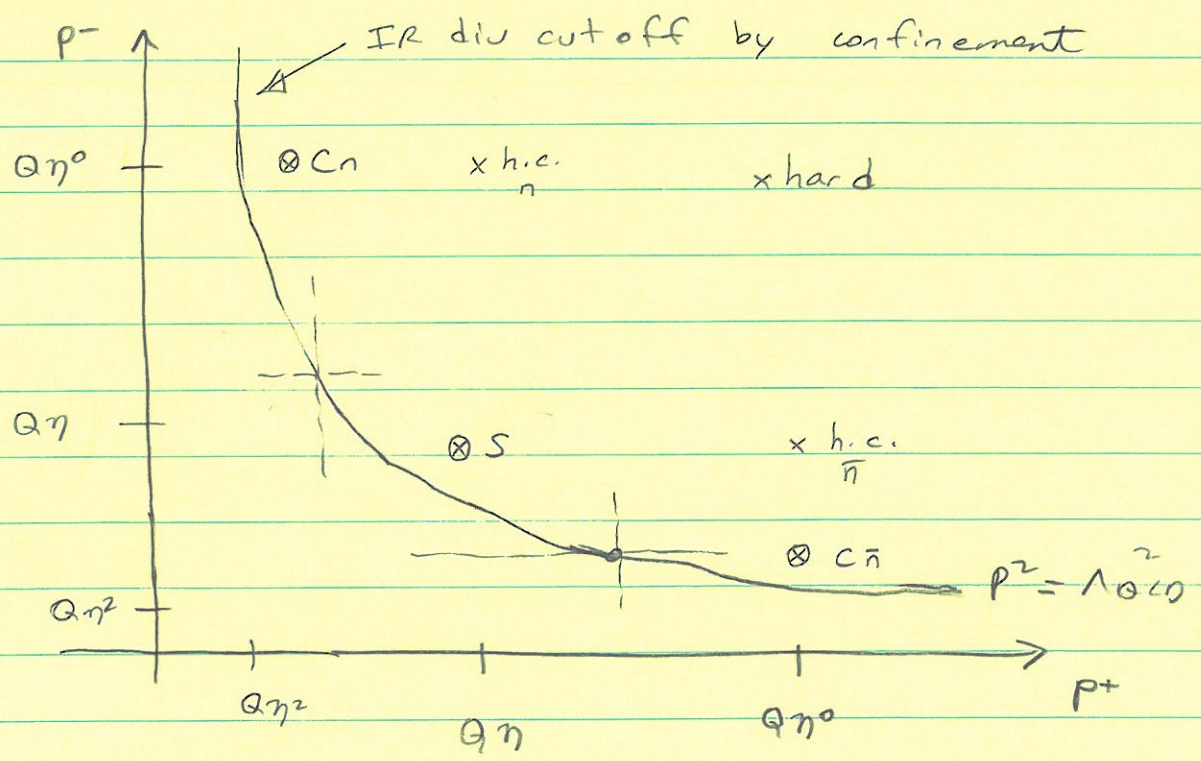 p-
IR div cutoff by confinement
Qη⁰
⊗ Cn
x h.c.
n
x hard
Qη
⊗ S
x h.c.
n̄
⊗ Cn̄
p² = Λ²QCD
Qη²
Qη²
Qη
Qη⁰
p+